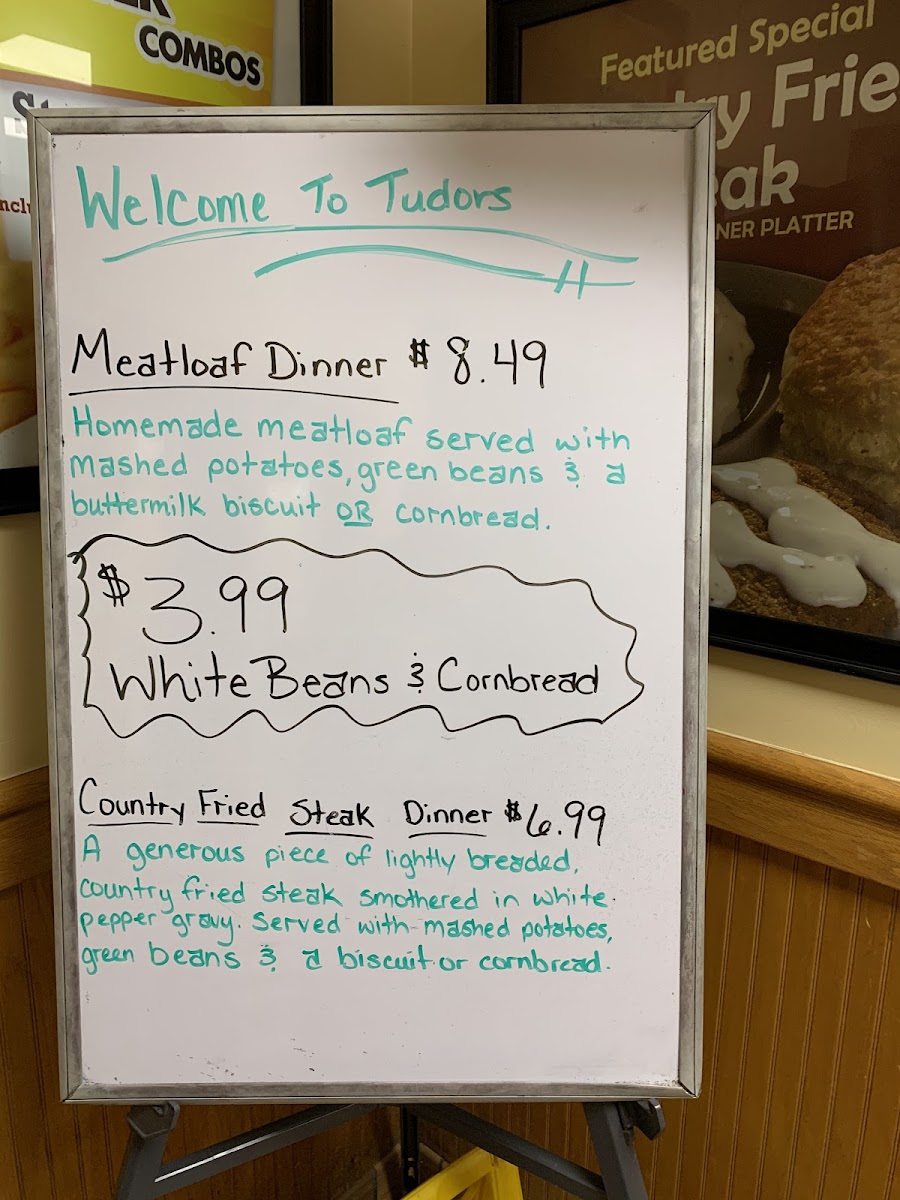 COMBOS
Featured Special
Frie
NER PLATTER
Welcome To Tudors
Meatloaf Dinner $8.49
Homemade meatloaf served with
mashed potatoes, green beans & a
buttermilk biscuit OR cornbread.
$3.99
White Beans & Cornbread
Country Fried Steak Dinner $6.99
A generous piece of lightly breaded,
country fried steak smothered in white
pepper gravy. Served with mashed potatoes,
green beans & a biscuit or cornbread.